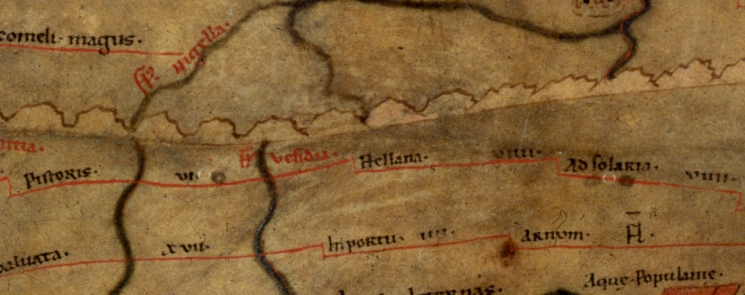 comeli magus.
fl. Nigella.
Pistoris. VI.
fl. Vesidia.
Hellana. VIIII.
Ad solaria. VIIII.
XVII.
In portu. IIII.
Arnum. fl.
Aque Populanie.